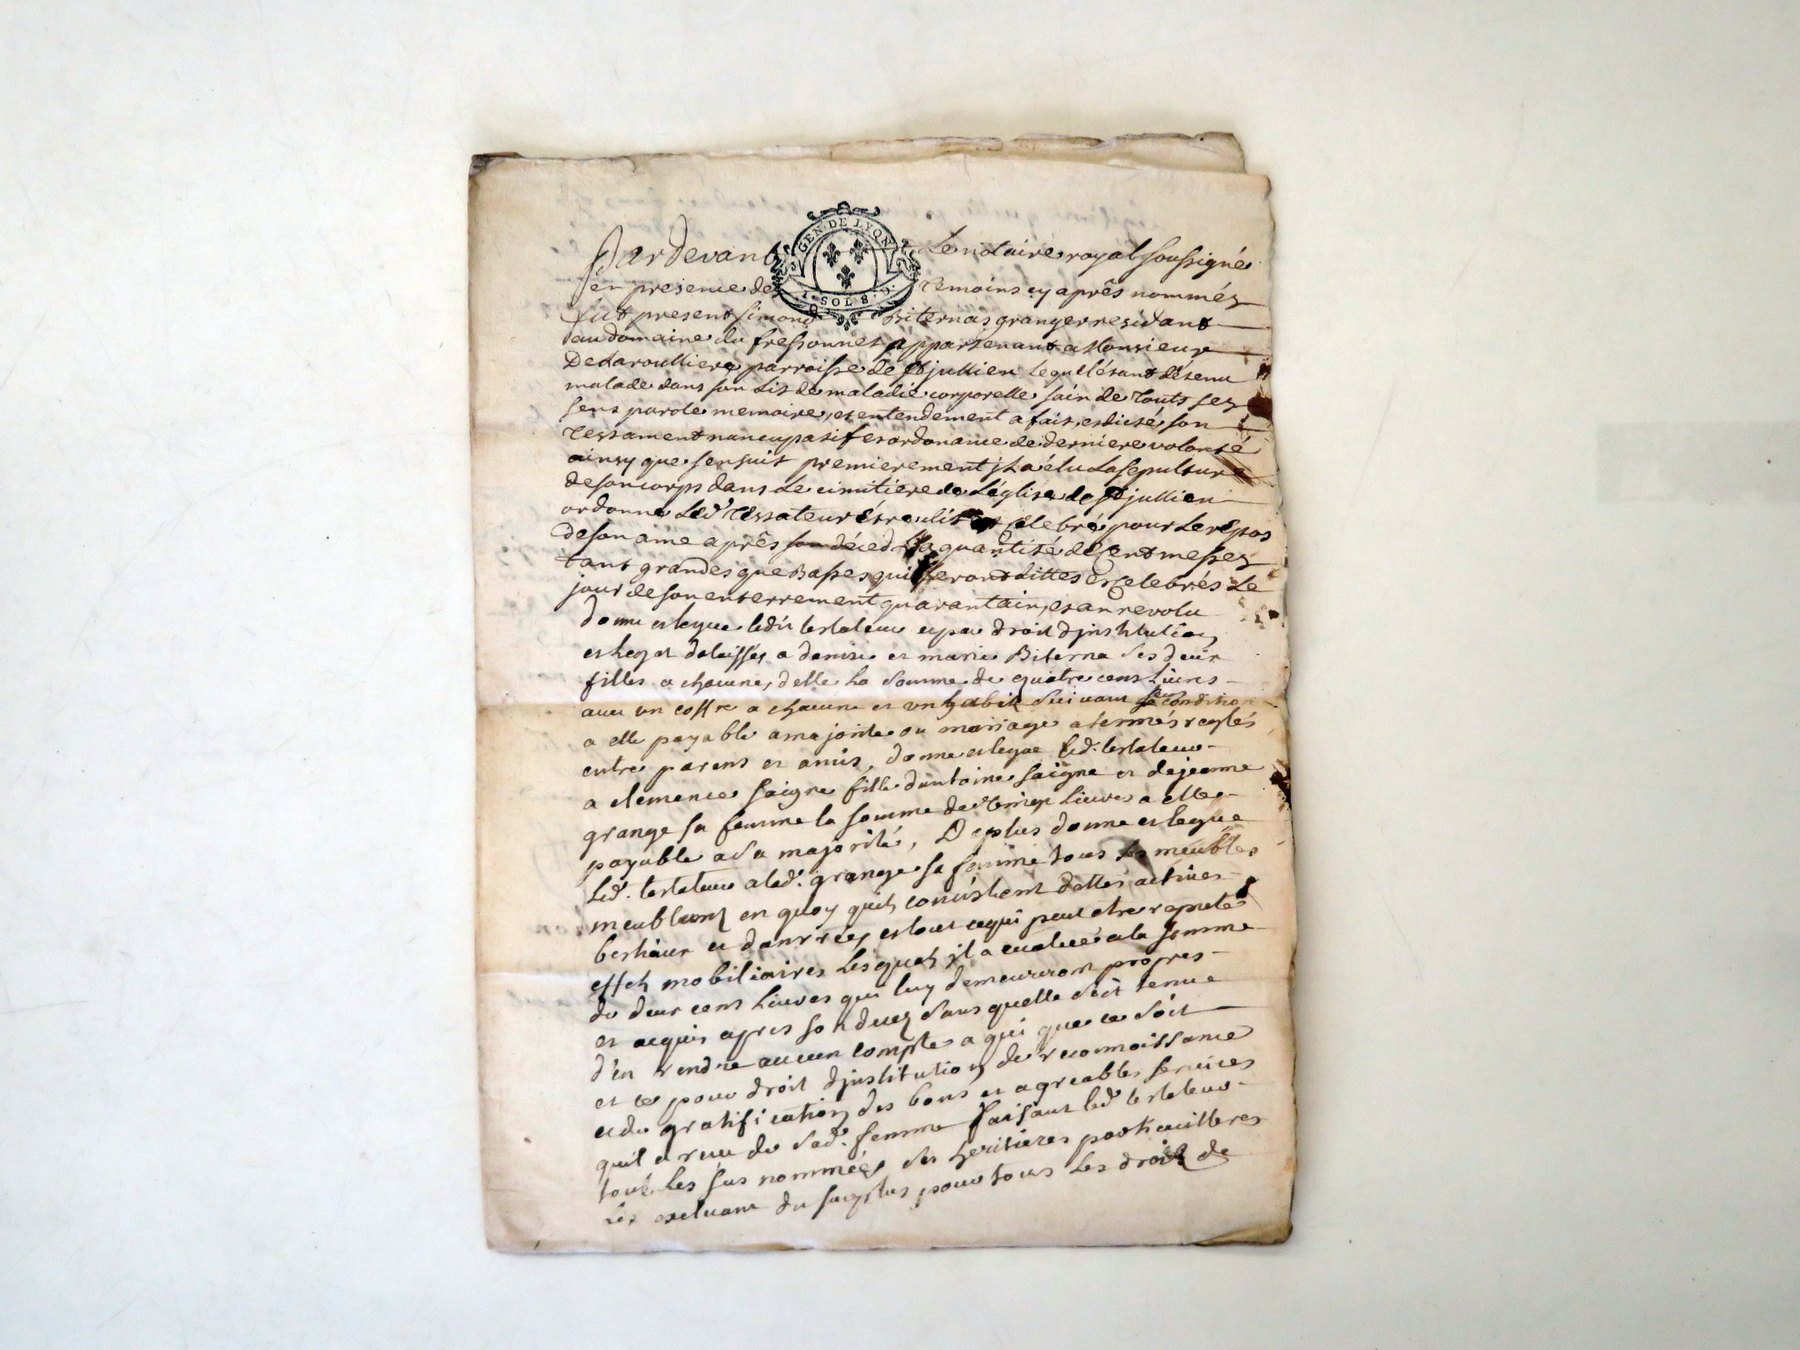 GEN. DE LYON
1. SOL 8. D.
Pardevant Le notaire royal soussigné
en presence de temoins cy aprês nommés
fut present simond Biternas granger residant
au domaine du fressonnet appartenant a Monsieur
De Laroulliere parroisse de St jullien Lequelésant détenu
malade dans son Lit de maladie corporelle sain de touts ses
sens parole memoire, et entendement a fait, et dicté, son
testament nuncupatif et ordonance de derniere volonté
ainsy que sensuit premierement jl a élu La sepulture
de son corps dans Le cimitiere de L'église de St jullien
ordonne Led' testateur estre célebré, pour Le repos
de son ame aprês son déced La quantité de Cent messes
tant grandes que Basses qui seront dittes et Celebrés Le
jour de son enterrement quarantain, et an revolu
donne et legue ledit testateur et par droit d'jnstitution
et hoyrs delaisse, a denise et marie Biterna ses deux
filles a chacune, d'elle La somme de quatre cent Livres
avec un coffre a chacune et un habit suivant sa condition
a elle payable a majorité ou mariage a termés reglés
entre parens et amis, donne et legue led. testateur
a clemence saigne fille d'antoine saigne et de jeanne
grange sa femme la somme de Livres a elle
payable a sa majorité, De plus donne et legue
Led. testateur a lad. grange sa femme tous les meubles
meublant en quoy qu'ils consistent dettes actives
bestiaux et danrées et tout ce qui peut etre reputé
effets mobiliaires Lesquels jl a evalué a la somme
de deux cent Livres qui luy demeureront propres
et acquis apres son deces sans quelle soit tenue
d'en rendre aucun compte a qui que ce soit
et ce pour droit d'jnstitution de reconnoissance
et de gratification des bons et agreables services
quil a reçu de sad. femme faisant led. testateur
tout les sus nommées ses heritieres particuilleres
les excluant du surplus pour tous les droits de